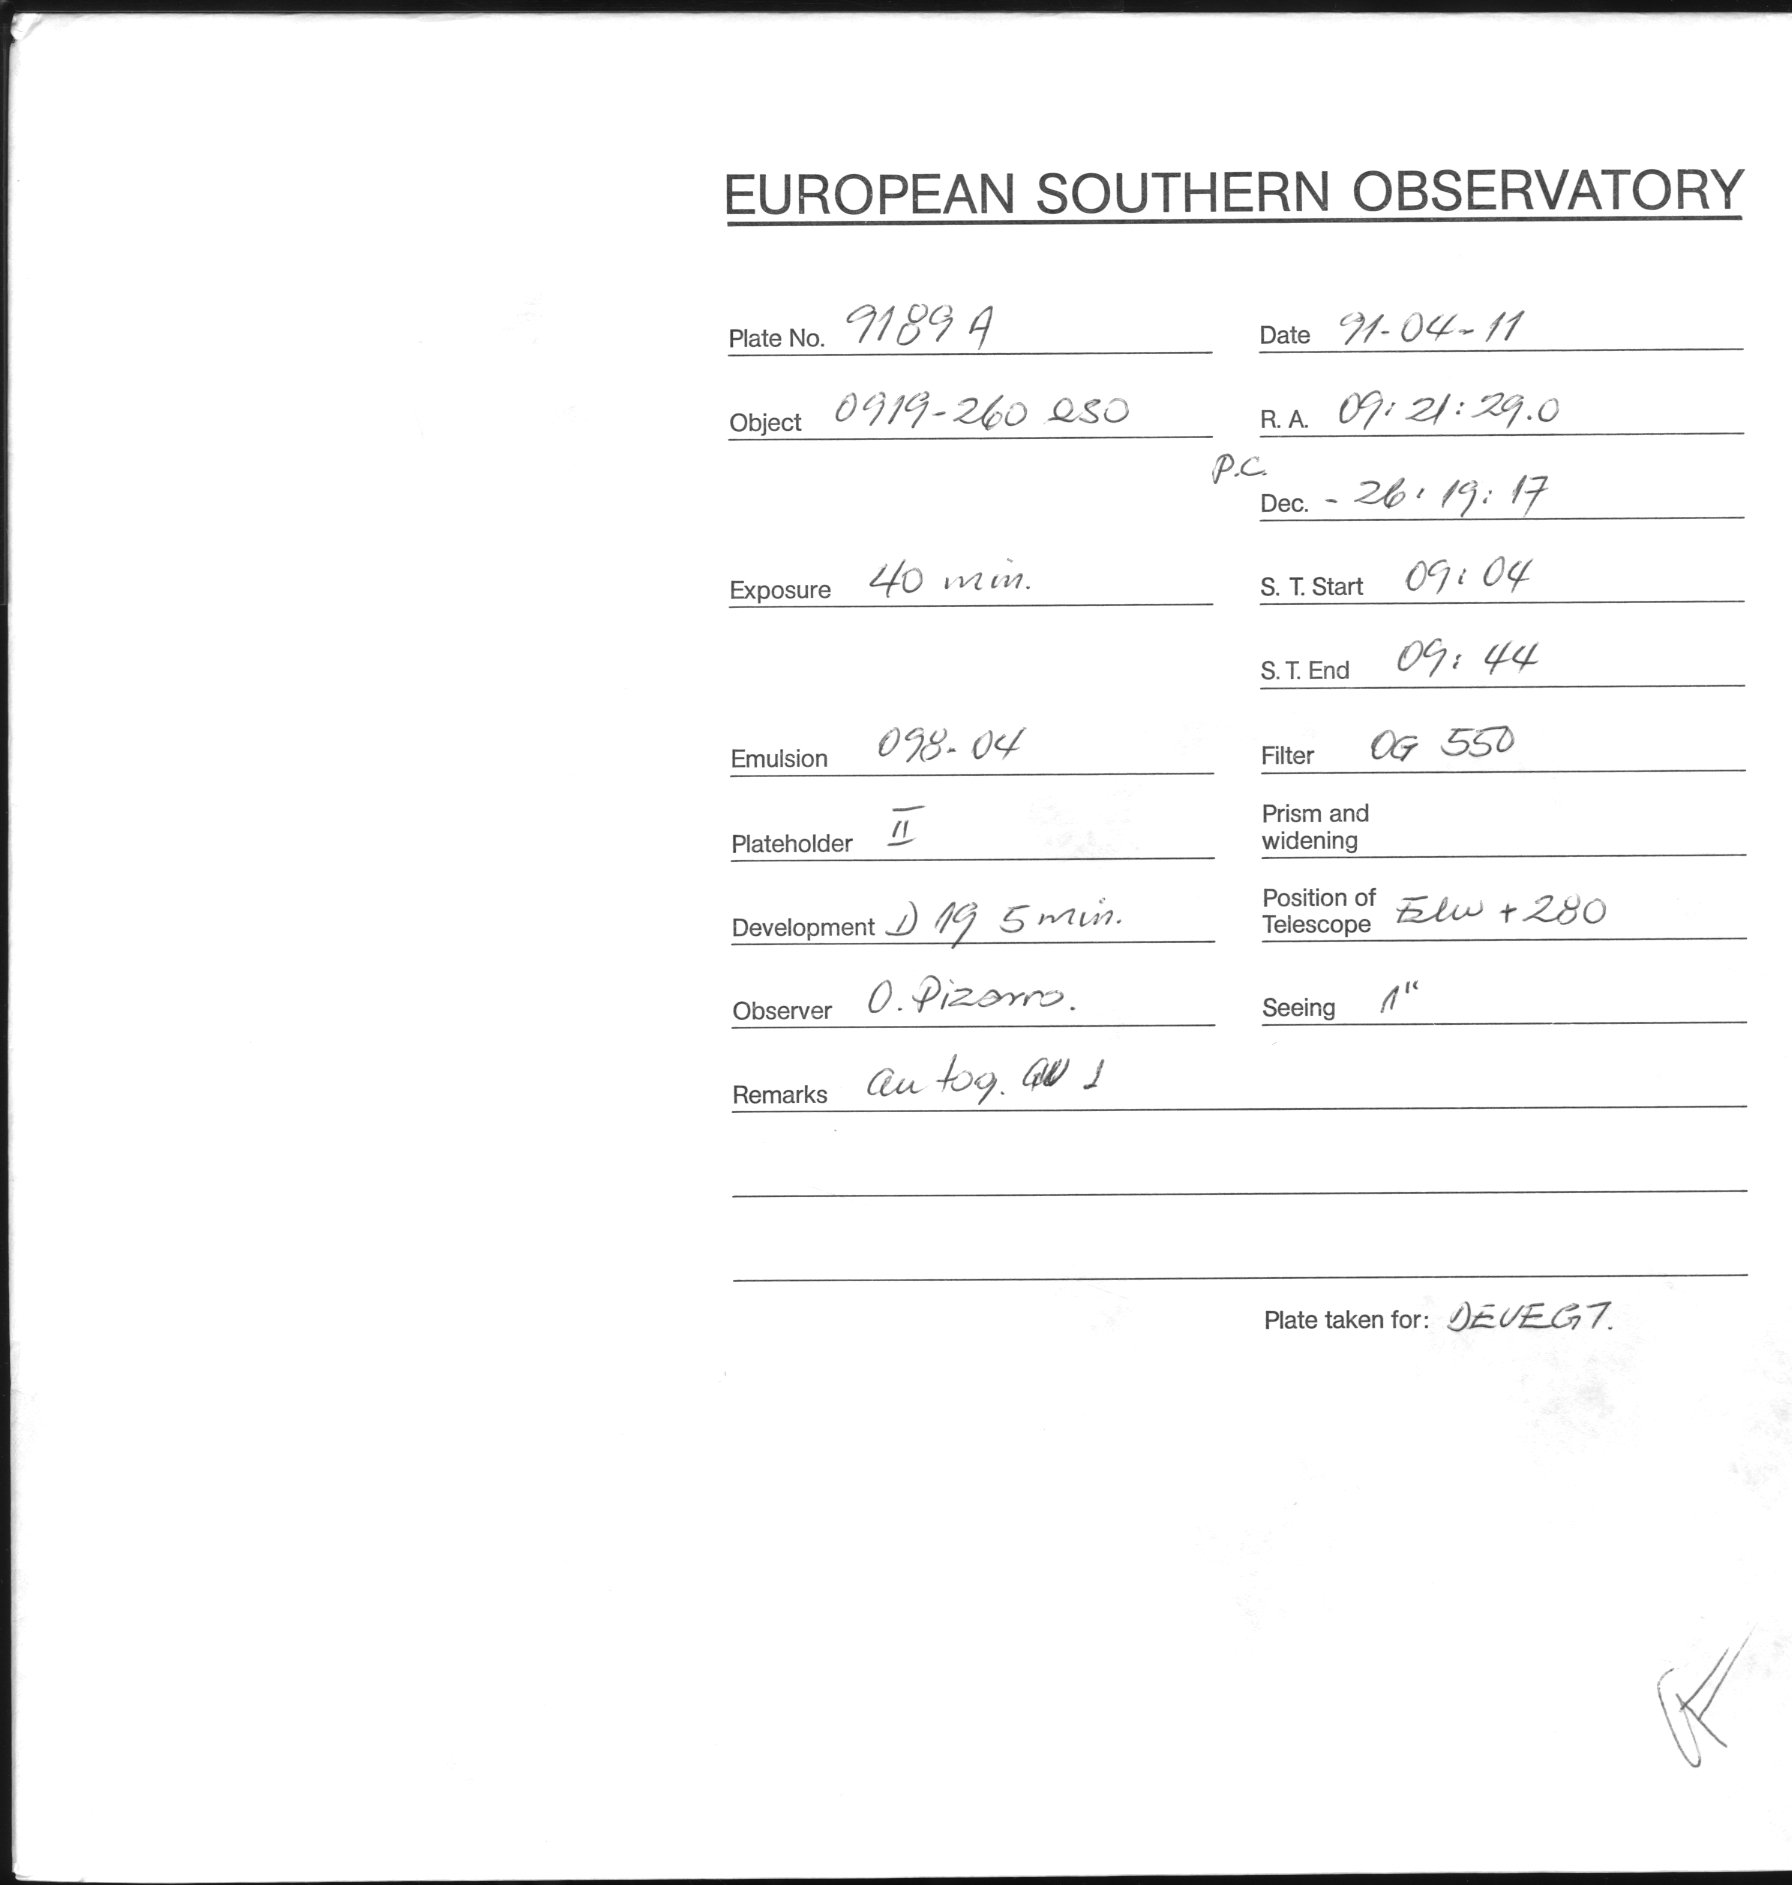 EUROPEAN SOUTHERN OBSERVATORY
Plate No. 9189 A Date 91-04-11
Object 0919-260 eso R. A. 09:21:29.0
P.C.
Dec. - 26:19:17
Exposure 40 min. S. T. Start 09:04
S. T. End 09:44
Emulsion 098-04 Filter OG 550
Plateholder II Prism and
widening
Development D 19 5 min. Position of
Telescope Elw +280
Observer O. Pizarro. Seeing 1"
Remarks autog. 1
Plate taken for: DEVEGT.